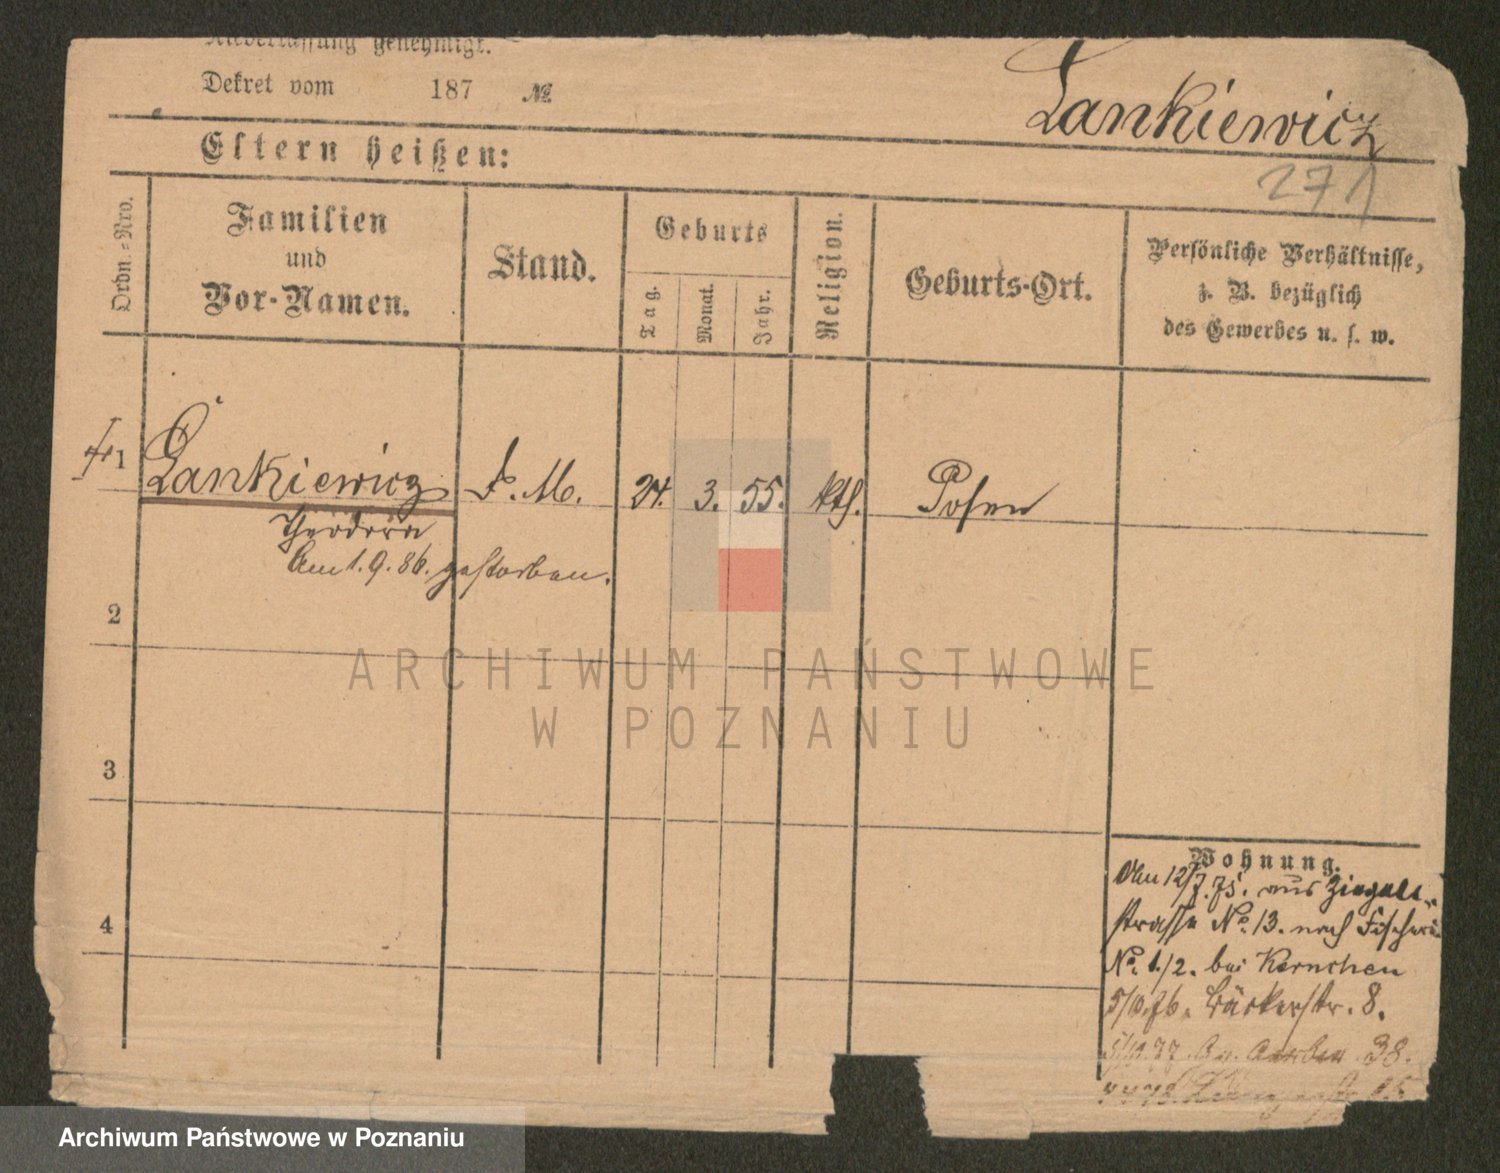 Niederlassung genehmigt.
Dekret vom 187 №
Lankiewicz
Eltern heißen:
271
Ordn.=Nro.
Familien
und
Vor-Namen.
Stand.
Geburts
Tag.
Monat.
Jahr.
Religion.
Geburts-Ort.
Persönliche Verhältnisse,
z. B. bezüglich
des Gewerbes u. s. w.
1 Lankiewicz D. M. 24. 3. 55. kth. Posen
Theodora
Am 1.9.86. gestorben.
2
ARCHIWUM PAŃSTWOWE
W POZNANIU
3
4
Wohnung.
Am 12/7.75. aus Ziegel-
strasse No. 13. nach Fischerei
No. 1/2. bei Kernchen
5/10.76. Bäckerstr. 8.
38.
Archiwum Państwowe w Poznaniu